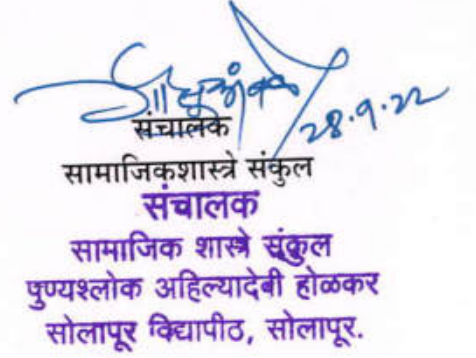 28.9.22
संचालक
सामाजिकशास्त्रे संकुल
संचालक
सामाजिक शास्त्रे संकुल
पुण्यश्लोक अहिल्यादेवी होळकर
सोलापूर विद्यापीठ, सोलापूर.